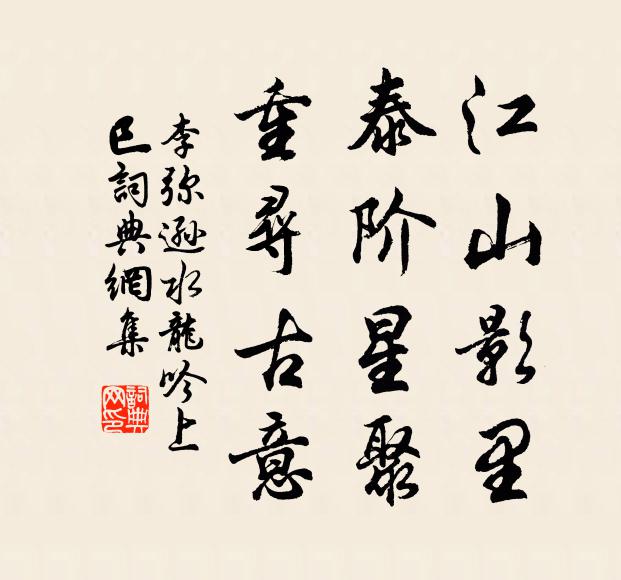 江山影里
泰阶星聚
重尋古意
李弥遜水龍吟上
巳詞典網集
詞典
网印